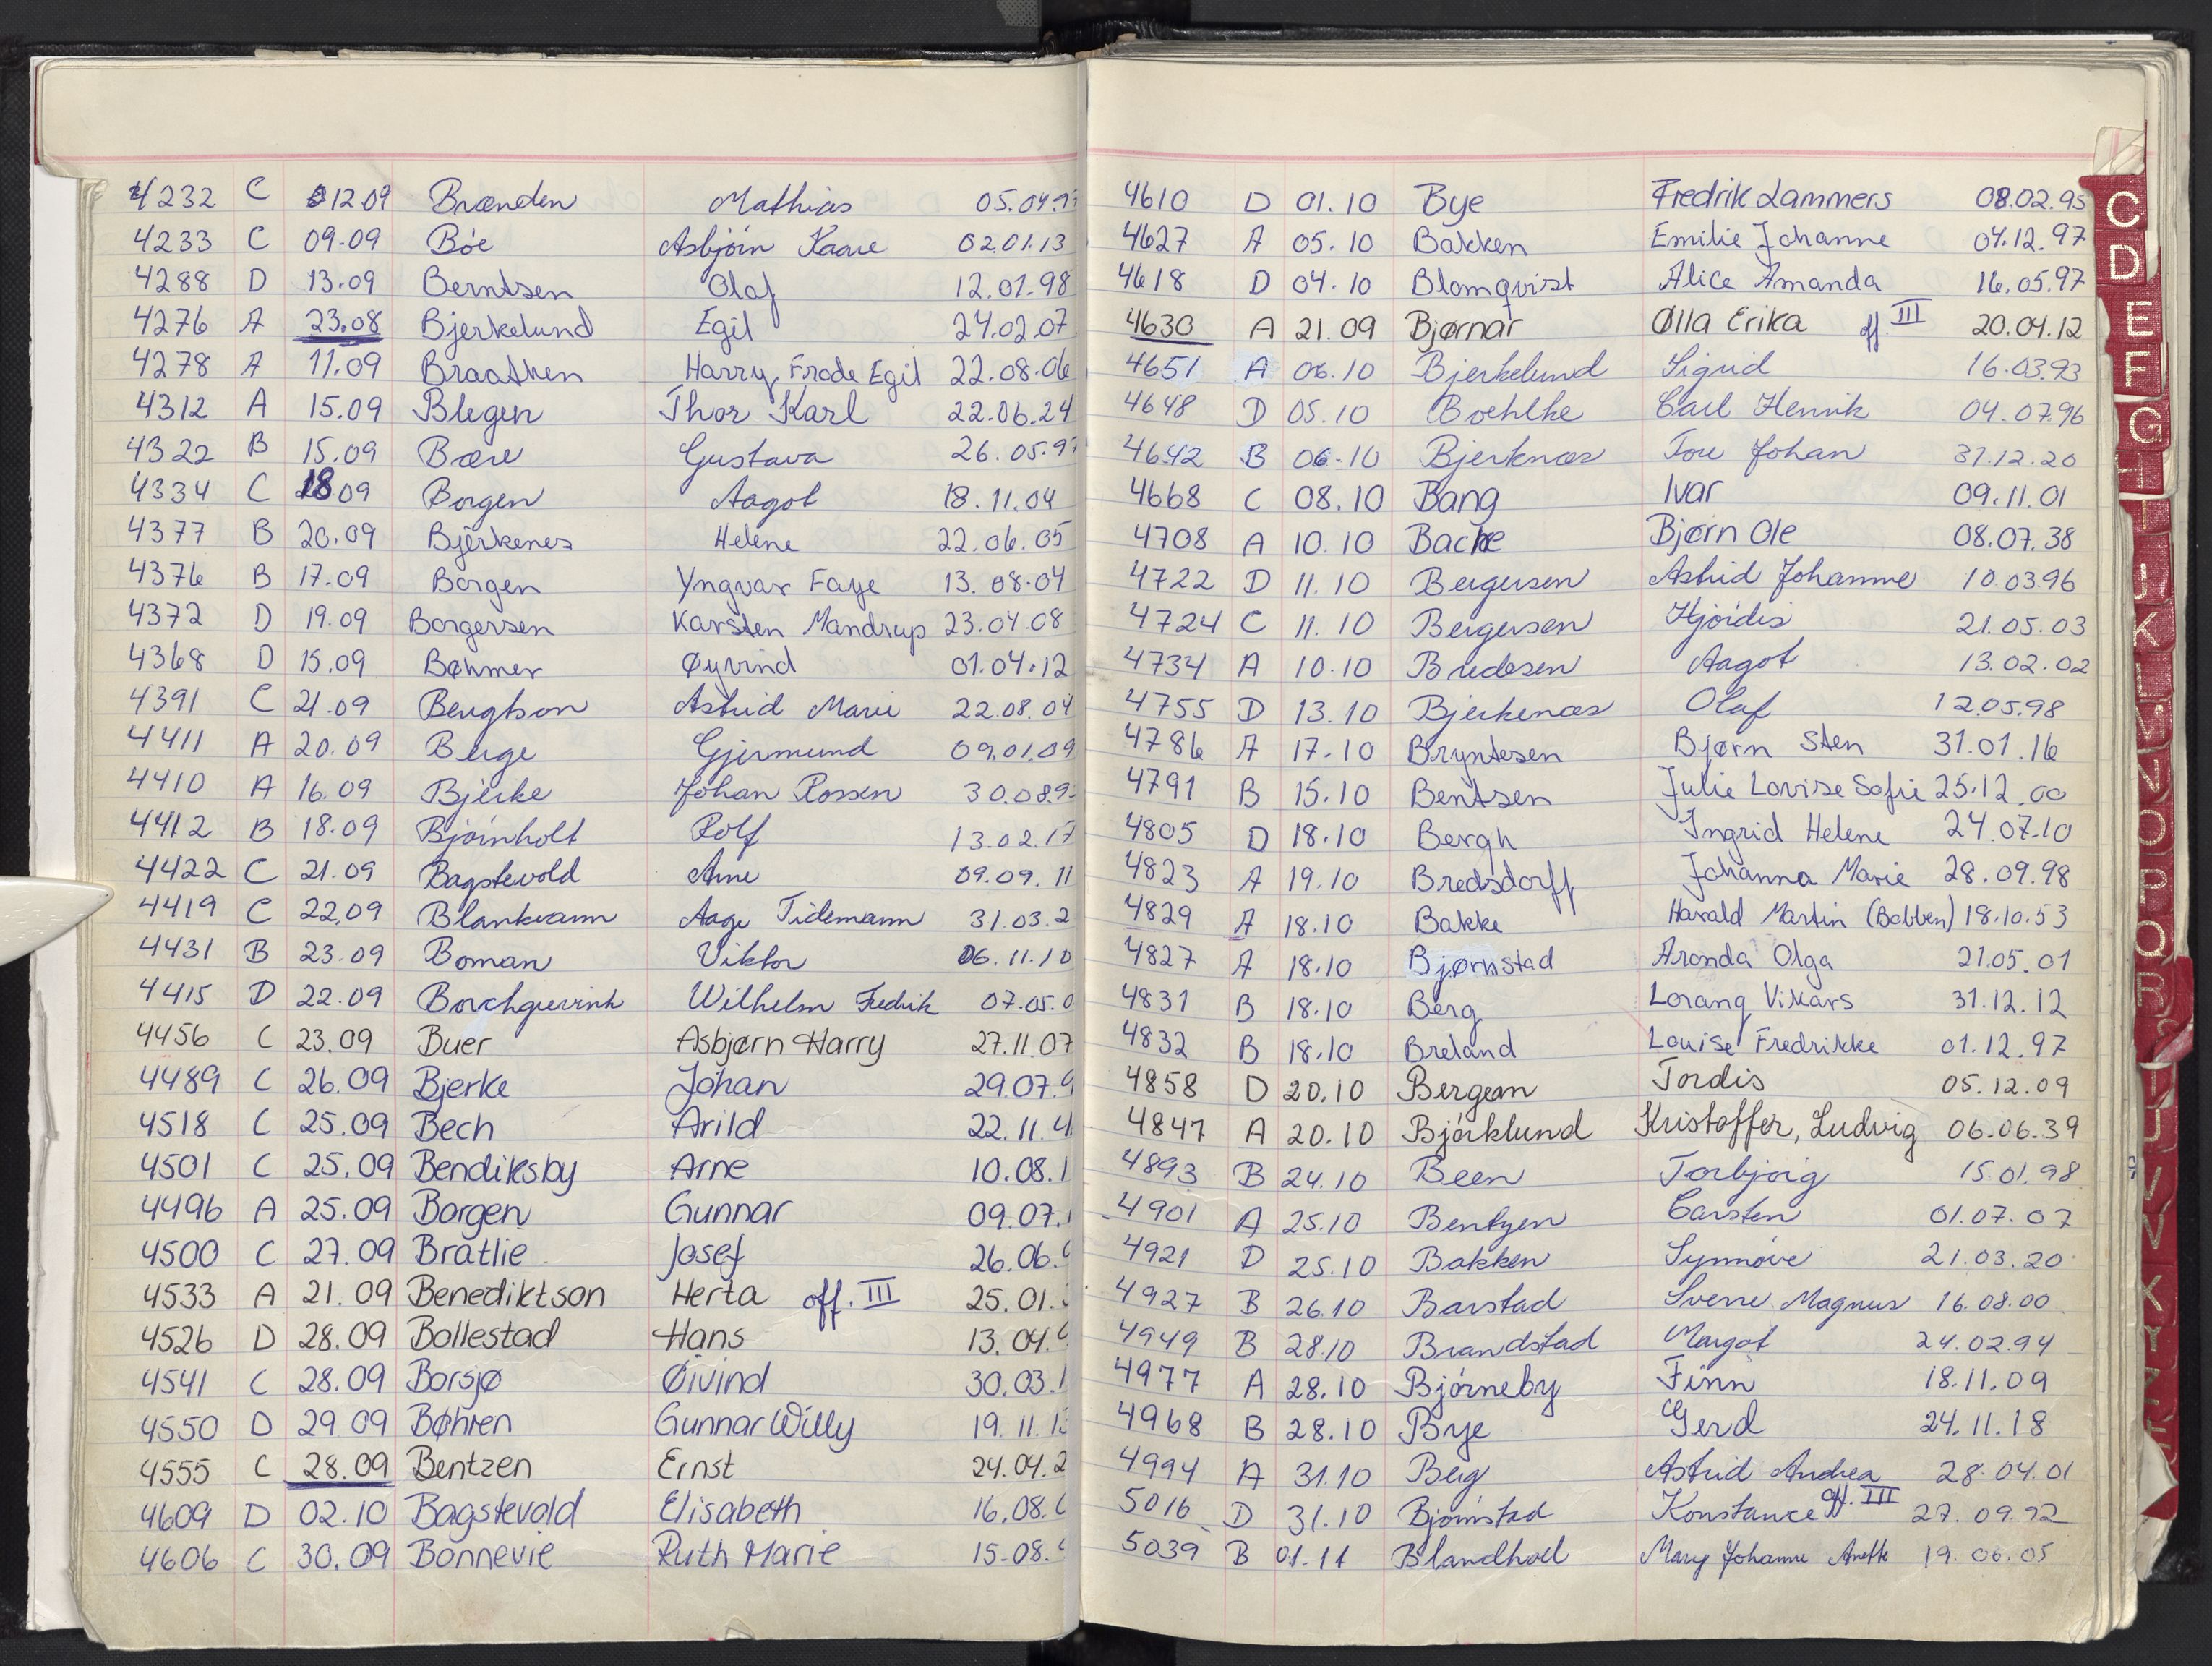 4232 C 12.09 Brænden Mathias 05.04.9
4233 C 09.09 Böe Asbjörn Kaare 02.01.13
4288 D 13.09 Berntsen Olaf 12.01.98
4276 A 23.08 Bjerkelund Egil 24.02.07
4278 A 11.09 Braathen Harry, Frode Egil 22.08.06
4312 A 15.09 Blegen Thor Karl 22.06.24
4322 B 15.09 Bære Gustava 26.05.9
4334 C 18 09 Borgen Aagot 18.11.04
4377 B 20.09 Bjerkenes Helene 22.06.05
4376 B 17.09 Borgen Yngvar Faye 13.08.04
4372 D 19.09 Borgersen Karsten Mandrup 23.04.08
4368 D 15.09 Bøhmer Øyvind 01.04.12
4391 C 21.09 Bengtson Astrid Marie 22.08.04
4411 A 20.09 Berge Gjermund 09.01.09
4410 A 16.09 Bjerke Johan Rossen 30.08.9
4412 B 18.09 Bjørnholt Rolf 13.02.17
4422 C 21.09 Bagstevold Arne 09.09.11
4419 C 22.09 Blankvann Aage Tidemann 31.03.2
4431 B 23.09 Boman Viktor 06.11.10
4415 D 22.09 Borchgrevink Wilhelm Fredrik 07.05.0
4456 C 23.09 Buer Asbjørn Harry 27.11.07
4489 C 26.09 Bjerke Johan 29.07.9
4518 C 25.09 Bech Arild 22.11.4
4501 C 25.09 Bendiksby Arne 10.08.1
4496 A 25.09 Borgen Gunnar 09.07.
4500 C 27.09 Bratlie Josef 26.06.
4533 A 21.09 Benediktson Herta off. III 25.01.
4526 D 28.09 Bollestad Hans 13.04.
4541 C 28.09 Borsjø Öivind 30.03.1
4550 D 29 09 Bøhren Gunnar Willy 19.11.13
4555 C 28.09 Bentzen Ernst 24.04.2
4609 D 02.10 Bagstevold Elisabeth 16.08.
4606 C 30.09 Bonnevie Ruth Marie 15-08.
4610 D 01.10 Bye Fredrik Lammers 08.02.95
4627 A 05.10 Bakken Emilie Johanne 04.12.97
4618 D 04.10 Blomqvist Alice Amanda 16.05.97
4630 A 21.09 Bjørnar Ølla Erika off III 20.04.12
4651 A 06.10 Bjerkelund Sigrid 16.03.93
4648 D 05.10 Boehlke Carl Henrik 04.07.96
4642 B 06.10 Bjerknæs Tore Johan 31.12.20
4668 C 08.10 Bang Ivar 09.11.01
4708 A 10.10 Bache Bjørn Ole 08.07.38
4722 D 11.10 Bergersen Astrid Johanne 10.03.96
4724 C 11.10 Bergersen Hjördis 21.05.03
4734 A 10.10 Bredesen Aagot 13.02.02
4755 D 13.10 Bjerkenæs Olaf 12.05.98
4786 A 17.10 Bryntesen Bjørn Sten 31.01.16
4791 B 15.10 Bentsen Julie Lovise Sofie 25.12.00
4805 D 18.10 Bergh Ingrid Helene 24.07.10
4823 A 19.10 Bredsdorff Johanna Marie 28.09.98
4829 A 18.10 Bakke Harald Martin (Bobben) 18.10.53
4827 A 18.10 Bjørnstad Aronda Olga 21.05.01
4831 B 18.10 Berg Lorang Vikars 31.12.12
4832 B 18.10 Breland Louise Fredrikke 01.12.97
4858 D 20.10 Bergean Tordis 05.12.09
4847 A 20.10 Björklund Kristoffer, Ludvig 06.06.39
4893 B 24.10 Been Torbjörg 15.01.98
4901 A 25.10 Bentzen Carsten 01.07.07
4921 D 25.10 Bakken Synnöve 21.03.20
4927 B 26.10 Barstad Sverre Magnus 16.08.00
4949 B 28.10 Brandstad Margot 24.02.94
4977 A 28.10 Bjørneby Finn 18.11.09
4968 B 28.10 Bye Gerd 24.11.18
4994 A 31.10 Berg Astrid Andrea 28.04.01
5016 D 31.10 Bjørnstad Konstance off. III 27.09.92
5039 B 01.11 Blandhoel Mary Johanne Anette 19.06.05
C
D
E
F
G
H
I
J
K
L
M
N
O
P
Q
R
T
U
V
X
Y